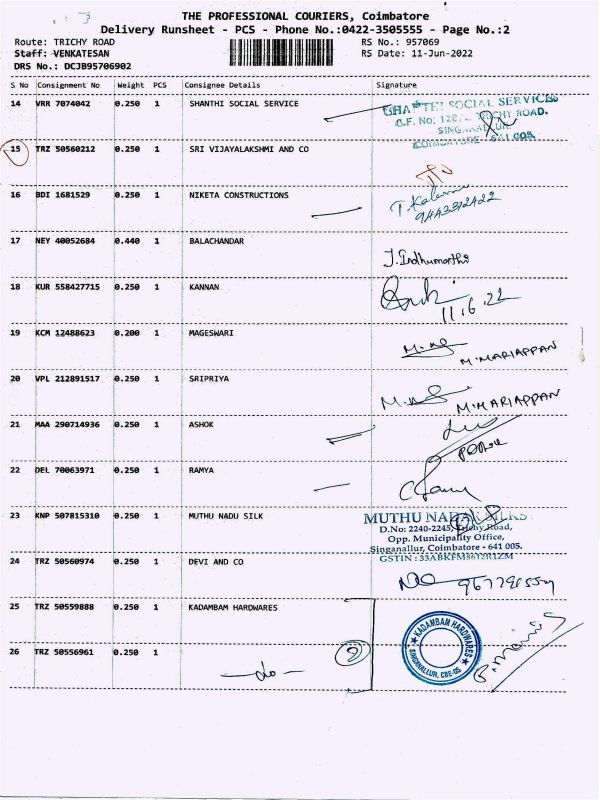 THE PROFESSIONAL COURIERS, Coimbatore
Delivery Runsheet - PCS - Phone No.:0422-3505555 - Page No.:2
Route: TRICHY ROAD RS No.: 957069
Staff: VENKATESAN RS Date: 11-Jun-2022
DRS No.: DCJB95706902
S No Consignment No Weight PCS Consignee Details Signature
14 VRR 7074042 0.250 1 SHANTHI SOCIAL SERVICE
SOCIAL SERVICES
TRICHY ROAD,
COIMBATORE - 641 005.
15 TRZ 50560212 0.250 1 SRI VIJAYALAKSHMI AND CO
16 BDI 1681529 0.250 1 NIKETA CONSTRUCTIONS
17 NEY 40052684 0.440 1 BALACHANDAR
J. Indhumathi
18 KUR 558427715 0.250 1 KANNAN
11.6.22
19 KCM 12488623 0.200 1 MAGESWARI
M. MARIAPPAN
20 VPL 212891517 0.250 1 SRIPRIYA
M. MARIAPPAN
21 MAA 290714936 0.250 1 ASHOK
22 DEL 70063971 0.250 1 RAMYA
23 KNP 507815310 0.250 1 MUTHU NADU SILK
MUTHU NADAR SILKS
D.No: 2240-2245, Trichy Road,
Opp. Municipality Office,
Singanallur, Coimbatore - 641 005.
24 TRZ 50560974 0.250 1 DEVI AND CO
25 TRZ 50559888 0.250 1 KADAMBAM HARDWARES
KADAMBAM HARDWARES
SINGANALLUR, CBE-05
26 TRZ 50556961 0.250 1
-do- 2